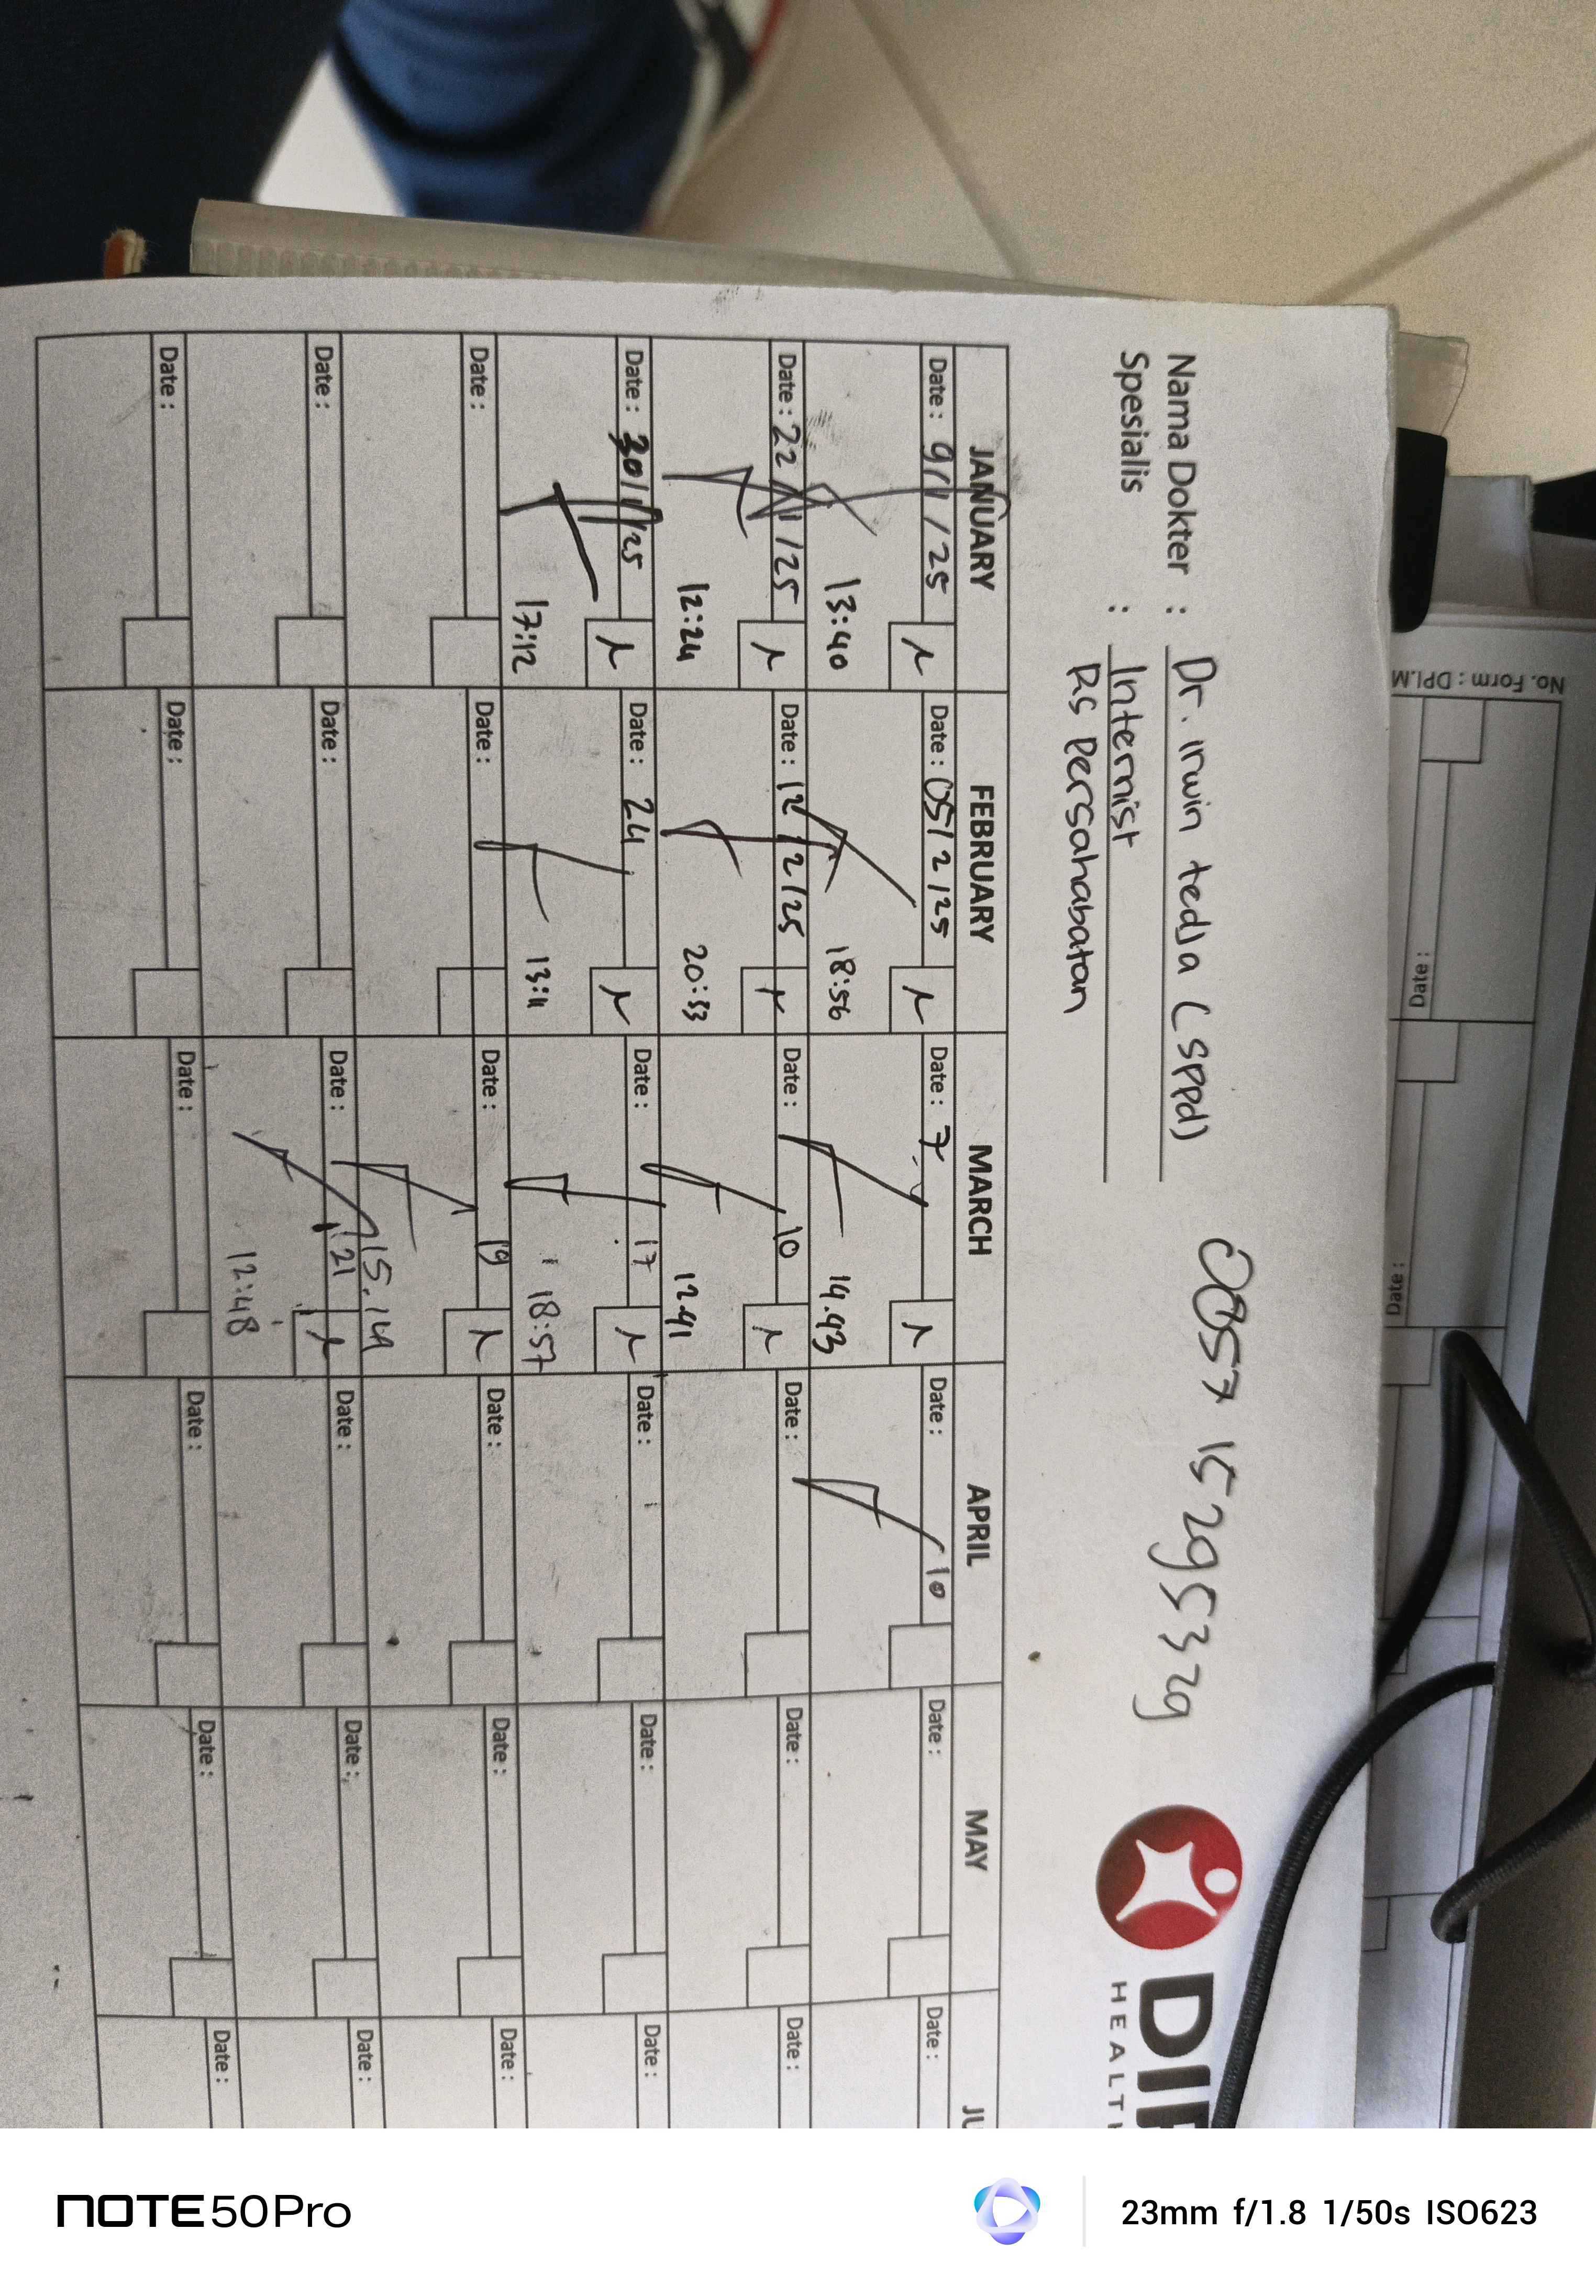 No. Form : DPI.M
Date :
Date :
Nama Dokter : Dr. irwin tedja (sppd)
Spesialis : Internist
RS Persahabatan
HEALT
JANUARY FEBRUARY MARCH APRIL MAY
Date : 9/1/25 Date : 05/2/25 Date : 7 Date : 10 Date : Date :
13:40 18:56 14.43
Date : 22/1/25 Date : 12/2/25 Date : 10 Date : Date : Date :
12:24 20:33 12.41
Date : 30/1/25 Date : 24 Date : 17 Date : Date : Date :
17:12 13:11 18:57
Date : Date : Date : 19 Date : Date : Date :
15.14
Date : Date : Date : 21 Date : Date : Date :
12:48
Date : Date : Date : Date : Date : Date :
NOTE50Pro
23mm f/1.8 1/50s ISO623